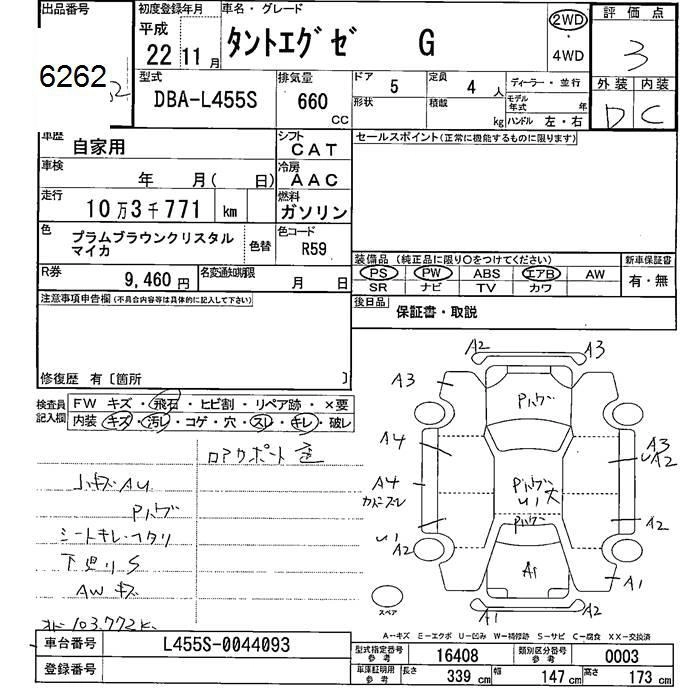 出品番号 初度登録年月 車名・グレード 評価点
平成 22 11月 タントエグゼ G 2WD ・ 4WD 3
6262
型式 排気量 ドア 5 定員 4人 ディーラー・並行 外装 内装
DBA-L455S 660 CC 形状 積載 kg モデル年式 年 ハンドル 左・右 D C
車歴 自家用 シフト CAT セールスポイント(正常に機能するものに限ります)
車検 年 月( 日) 冷房 AAC
走行 10万3千771 km 燃料 ガソリン
色 プラムブラウンクリスタル
マイカ 色替 色コード R59
装備品 (純正品に限り○をつけてください) 新車保証書
R券 9,460円 名変通知期限 月 日 PS PW ABS エアB AW 有・無
SR ナビ TV カワ
注意事項申告欄(不具合内容等は具体的に記入して下さい) 後日品 保証書・取説
修復歴 有〔箇所 〕
検査員記入欄 FW キズ・飛石・ヒビ割・リペア跡・×要
内装 キズ・汚レ・コゲ・穴・スレ・キレ・破レ
ロアサポート歪
小キズAU
Pハゲ
シートキレ・ヘタリ
下廻りS
AWキズ
メーター103,772k
A2 A3
A3 Pハゲ
A4 A3
UA2
A4 Pハゲ
U1
カドズレ Pハゲ A2
U1
A2 A1 A1
スペア A1 A2
A-キズ E-エクボ U-凹み W-補修跡 S-サビ C-腐食 XX-交換済
車台番号 L455S-0044093 型式指定番号 参考 16408 類別区分番号 参考 0003
登録番号 車庫証明用 参考 長さ 339 cm 幅 147 cm 高さ 173 cm